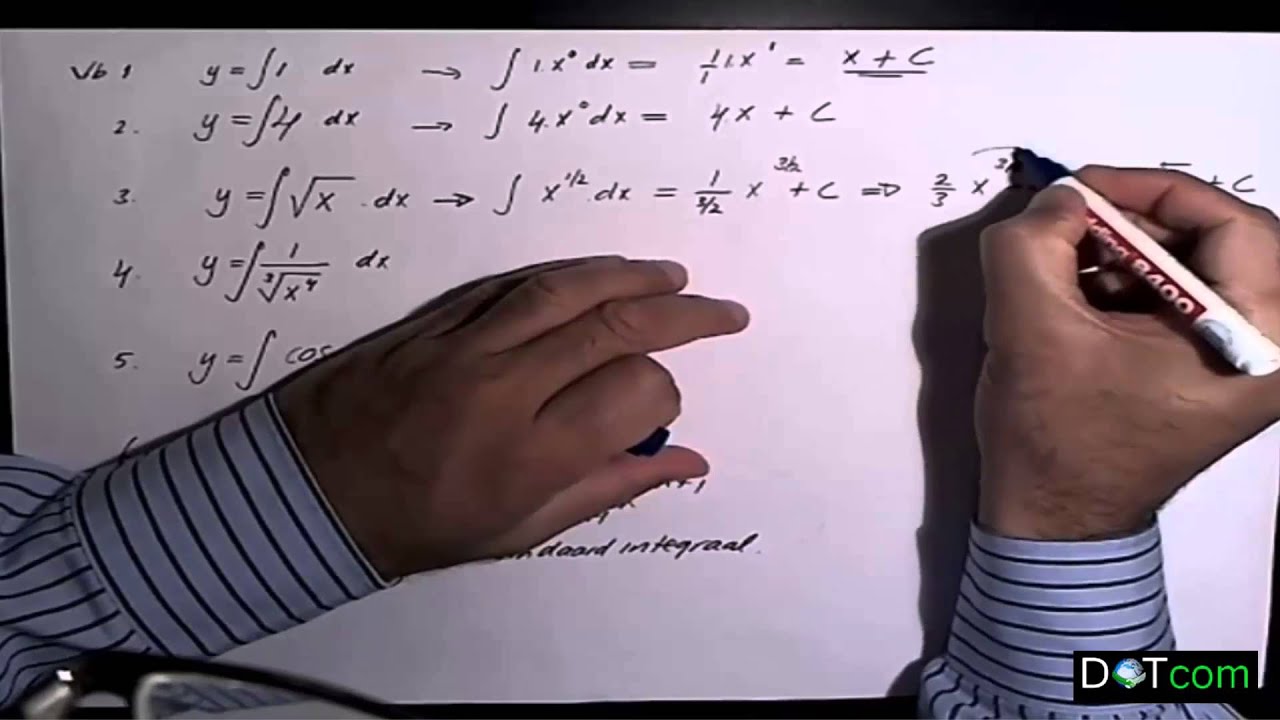 Vb 1 y = ∫ 1 dx → ∫ 1.x⁰ dx = 1/1 1.x¹ = x + C
2. y = ∫ 4 dx → ∫ 4.x⁰ dx = 4x + C
3. y = ∫ √x . dx → ∫ x^1/2 . dx = 1/(3/2) x^3/2 + C ⇒ 2/3 x + C
4. y = ∫ 1/∛x⁴ dx
5. y = ∫ cos
integraal.
edding
DOTcom